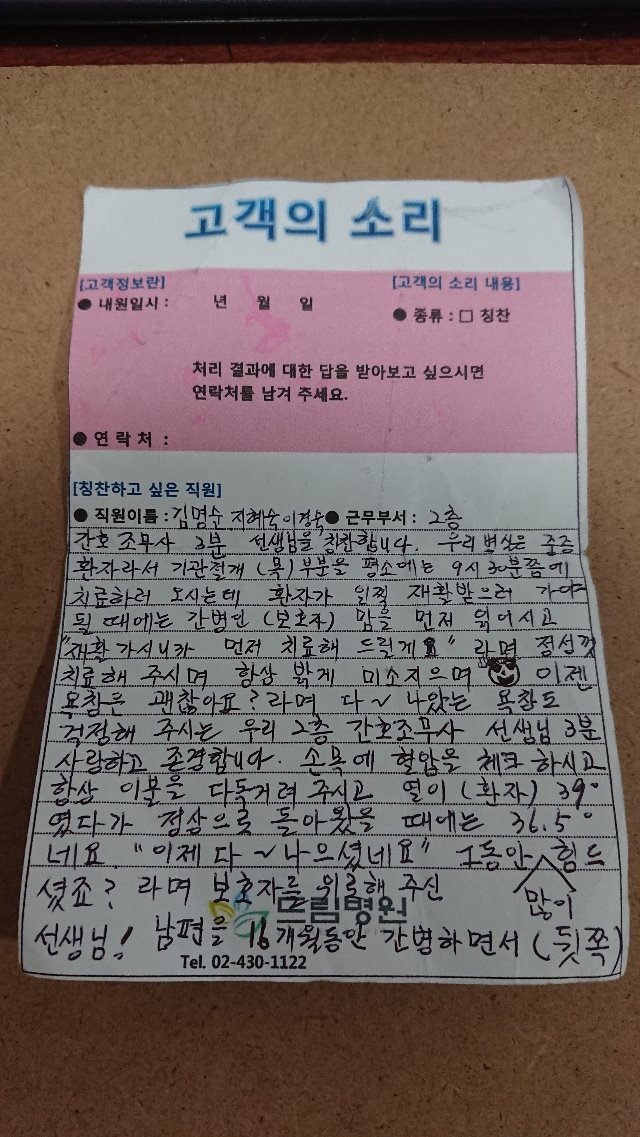 고객의 소리
[고객정보란]
● 내원일시 : 년 월 일
[고객의 소리 내용]
● 종류 : □ 칭찬
처리 결과에 대한 답을 받아보고 싶으시면
연락처를 남겨 주세요.
● 연 락 처 :
[칭찬하고 싶은 직원]
● 직원이름 : 김명순 지혜숙 이경숙 ● 근무부서 : 2층
간호 조무사 3분 선생님을 칭찬합니다. 우리 병실은 중증
환자라서 기관절개 (목) 부분을 평소에는 9시 30분쯤에
치료하러 오시는데 환자가 일찍 재활받으러 가야
될 때에는 간병인 (보호자) 맘을 먼저 읽어시고
"재활 가시니까 먼저 치료해 드릴게요" 라며 정성껏
치료해 주시며 항상 밝게 미소지으며 이젠
욕창은 괜찮아요? 라며 다~ 나았는 욕창도
걱정해 주시는 우리 2층 간호조무사 선생님 3분
사랑하고 존경합니다. 손목에 혈압을 체크 하시고
항상 이불을 다독거려 주시고 열이 (환자) 39°
였다가 정상으로 돌아왔을 때에는 36.5°
네요. "이제 다 ~ 나으셨네요" 그동안 많이 힘드
셨죠? 라며 보호자를 위로해 주신
드림병원
선생님! 남편을 16개월동안 간병하면서 (뒷쪽)
Tel. 02-430-1122